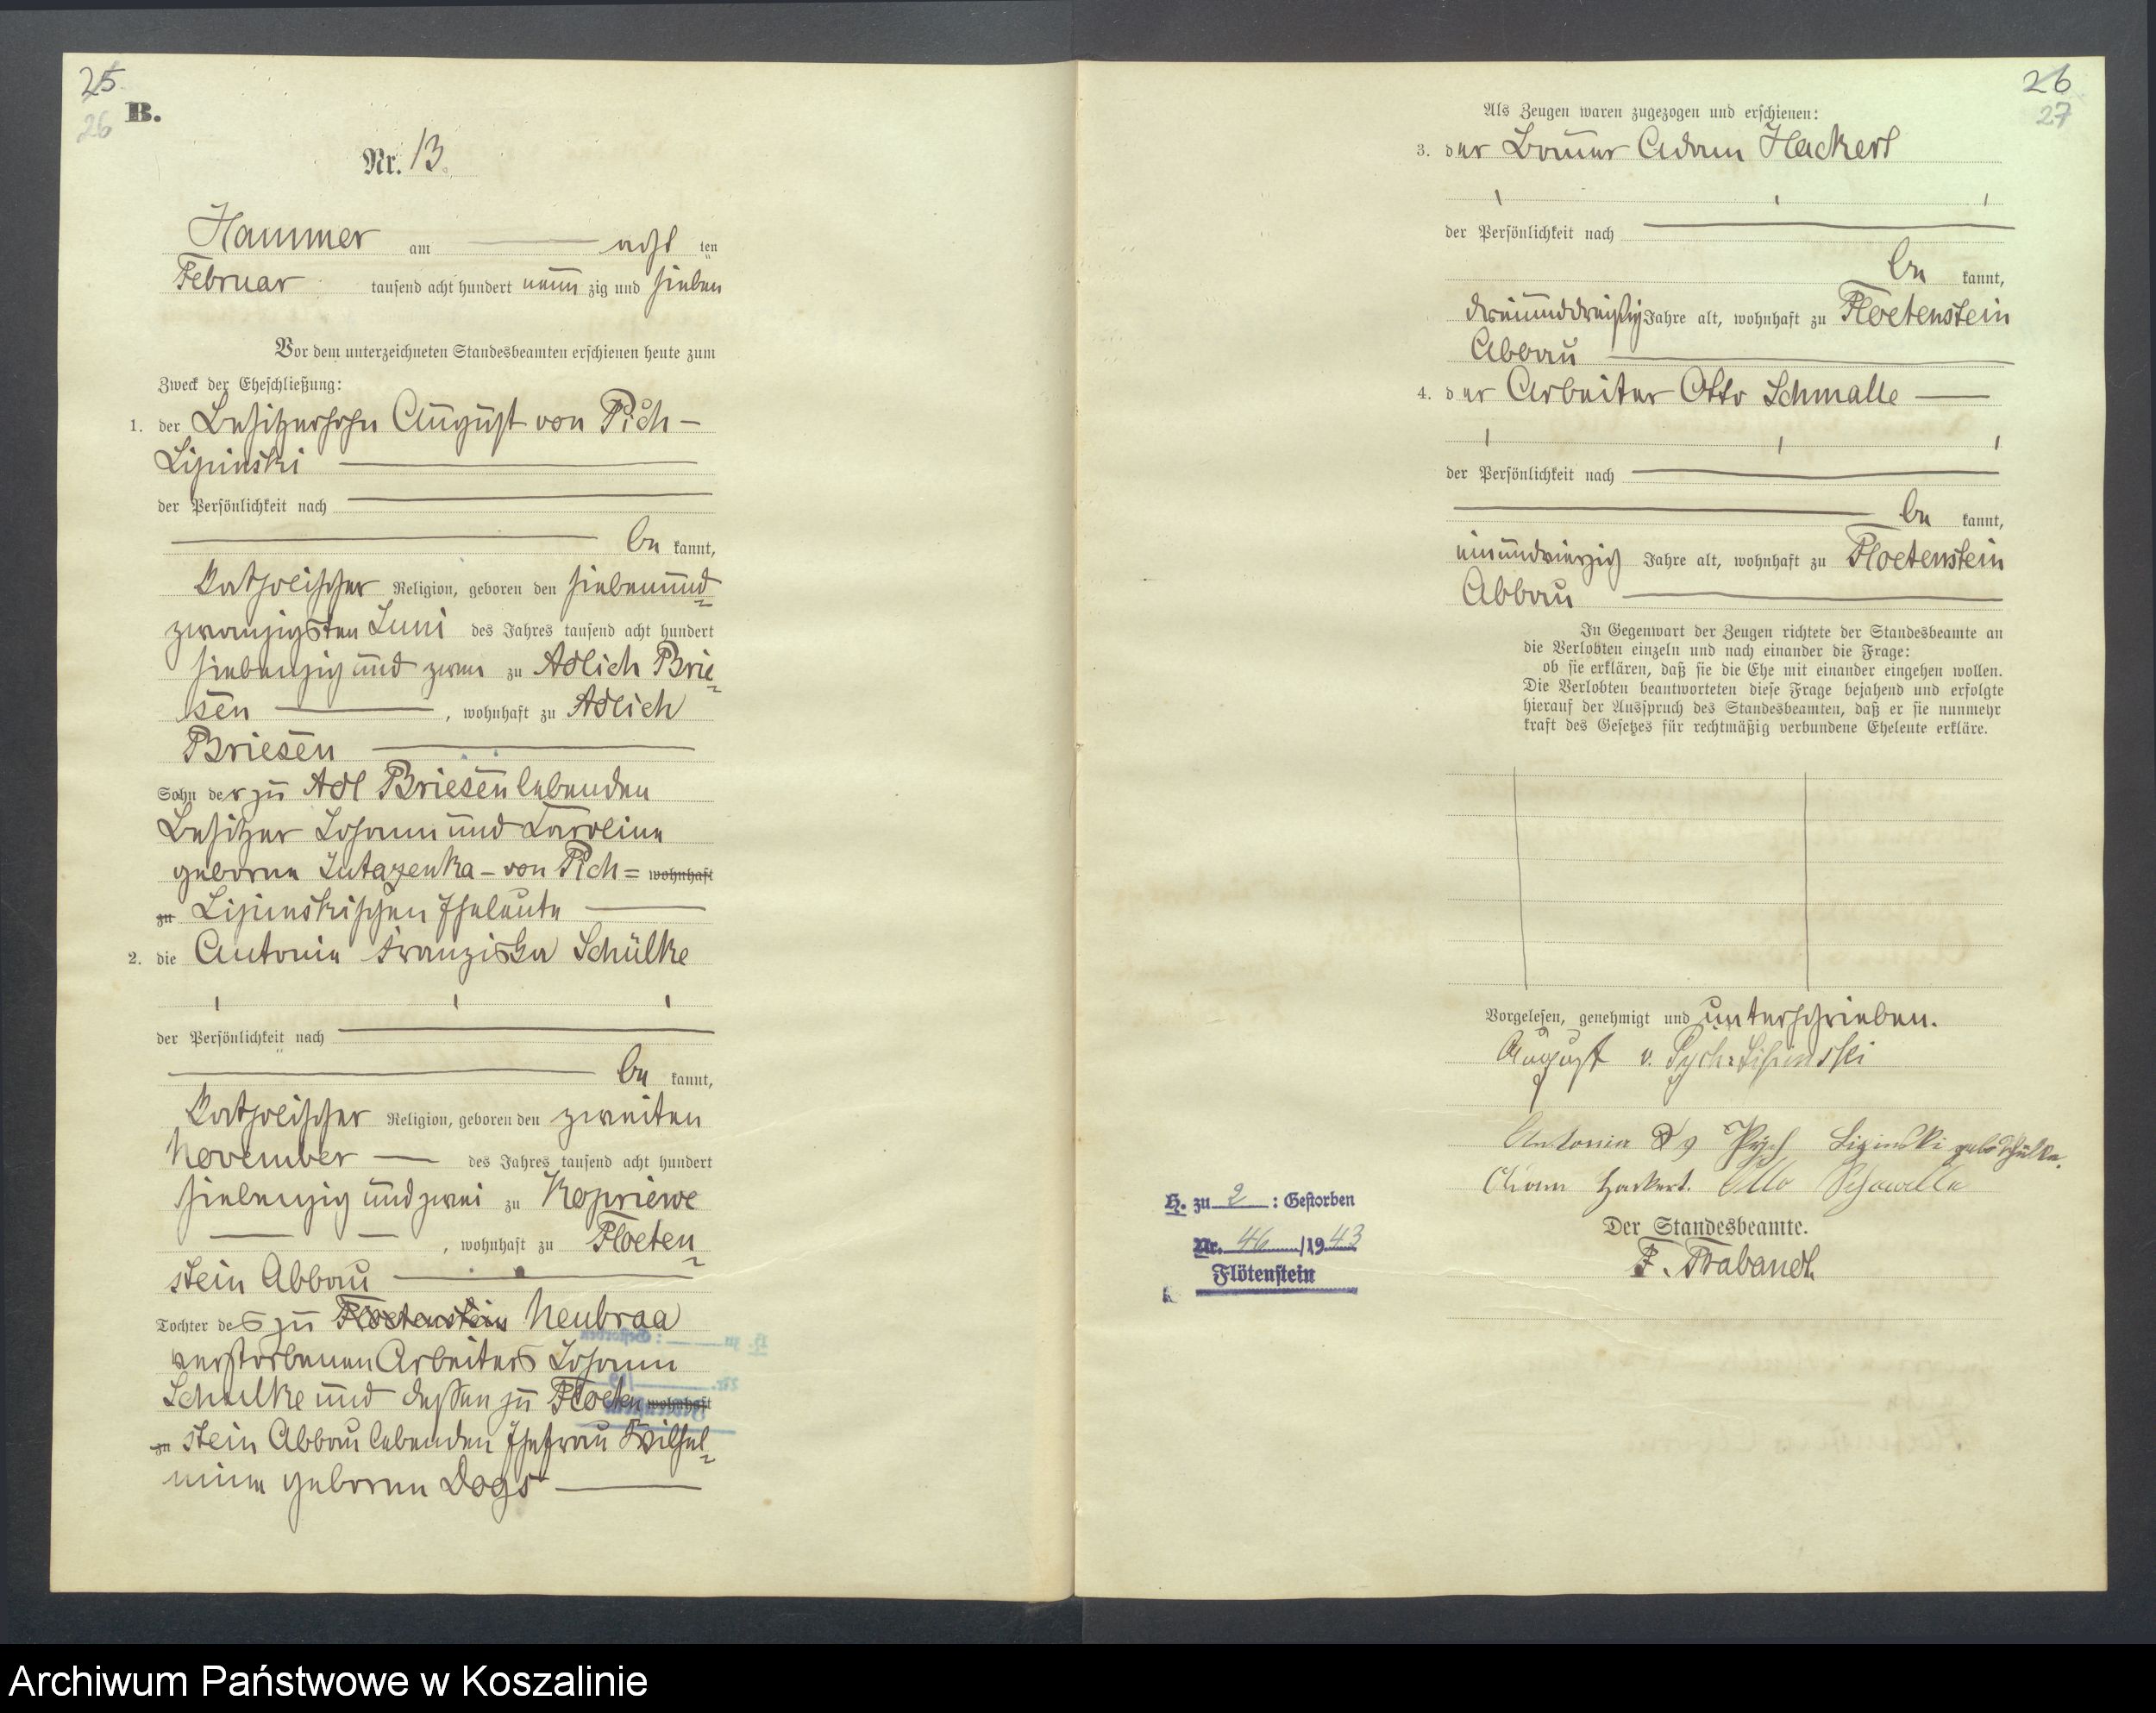 25
26
B.
Nr. 13.
Hammer am acht ten
Februar tausend acht hundert neun zig und sieben
Vor dem unterzeichneten Standesbeamten erschienen heute zum
Zweck der Eheschließung:
1. der Besitzersohn August von Pich-
Lipinski
der Persönlichkeit nach
be kannt,
katholischer Religion, geboren den siebenund
zwanzigsten Juni des Jahres tausend acht hundert
siebenzig und zwei zu Adlich Brie
sen, wohnhaft zu Adlich
Briesen
Sohn der zu Adl Briesen lebenden
Besitzer Johann und Caroline
geborne Jutrzenka - von Pich= wohnhaft
zu Lipinskischen Eheleute
2. die Antonie Franziska Schülke
der Persönlichkeit nach
be kannt,
katholischer Religion, geboren den zweiten
November des Jahres tausend acht hundert
siebenzig und zwei zu Kopriewe
, wohnhaft zu Floeten
stein Abbau
Tochter des zu Floetenstein Neubraa
verstorbenen Arbeiters Johann
Schulke und dessen zu Floeten wohnhaft
zu stein Abbau lebenden Ehefrau Wilhel
mine geborne Dogs
26
27
Als Zeugen waren zugezogen und erschienen:
3. der Bauer Adam Hackert
der Persönlichkeit nach
be kannt,
dreiunddreißig Jahre alt, wohnhaft zu Floetenstein
Abbau
4. der Arbeiter Otto Schmalle
der Persönlichkeit nach
be kannt,
einundvierzig Jahre alt, wohnhaft zu Floetenstein
Abbau
In Gegenwart der Zeugen richtete der Standesbeamte an
die Verlobten einzeln und nach einander die Frage:
ob sie erklären, daß sie die Ehe mit einander eingehen wollen.
Die Verlobten beantworteten diese Frage bejahend und erfolgte
hierauf der Ausspruch des Standesbeamten, daß er sie nunmehr
kraft des Gesetzes für rechtmäßig verbundene Eheleute erkläre.
Vorgelesen, genehmigt und unterschrieben.
August v. Pych-Lipinski
Antonia Pych Lipinski geb Schülke.
Adam Hackert. Otto
H. zu 2 : Gestorben
Nr. 46 /1943
Flötenstein
Der Standesbeamte.
F. Trabandt.
Archiwum Państwowe w Koszalinie